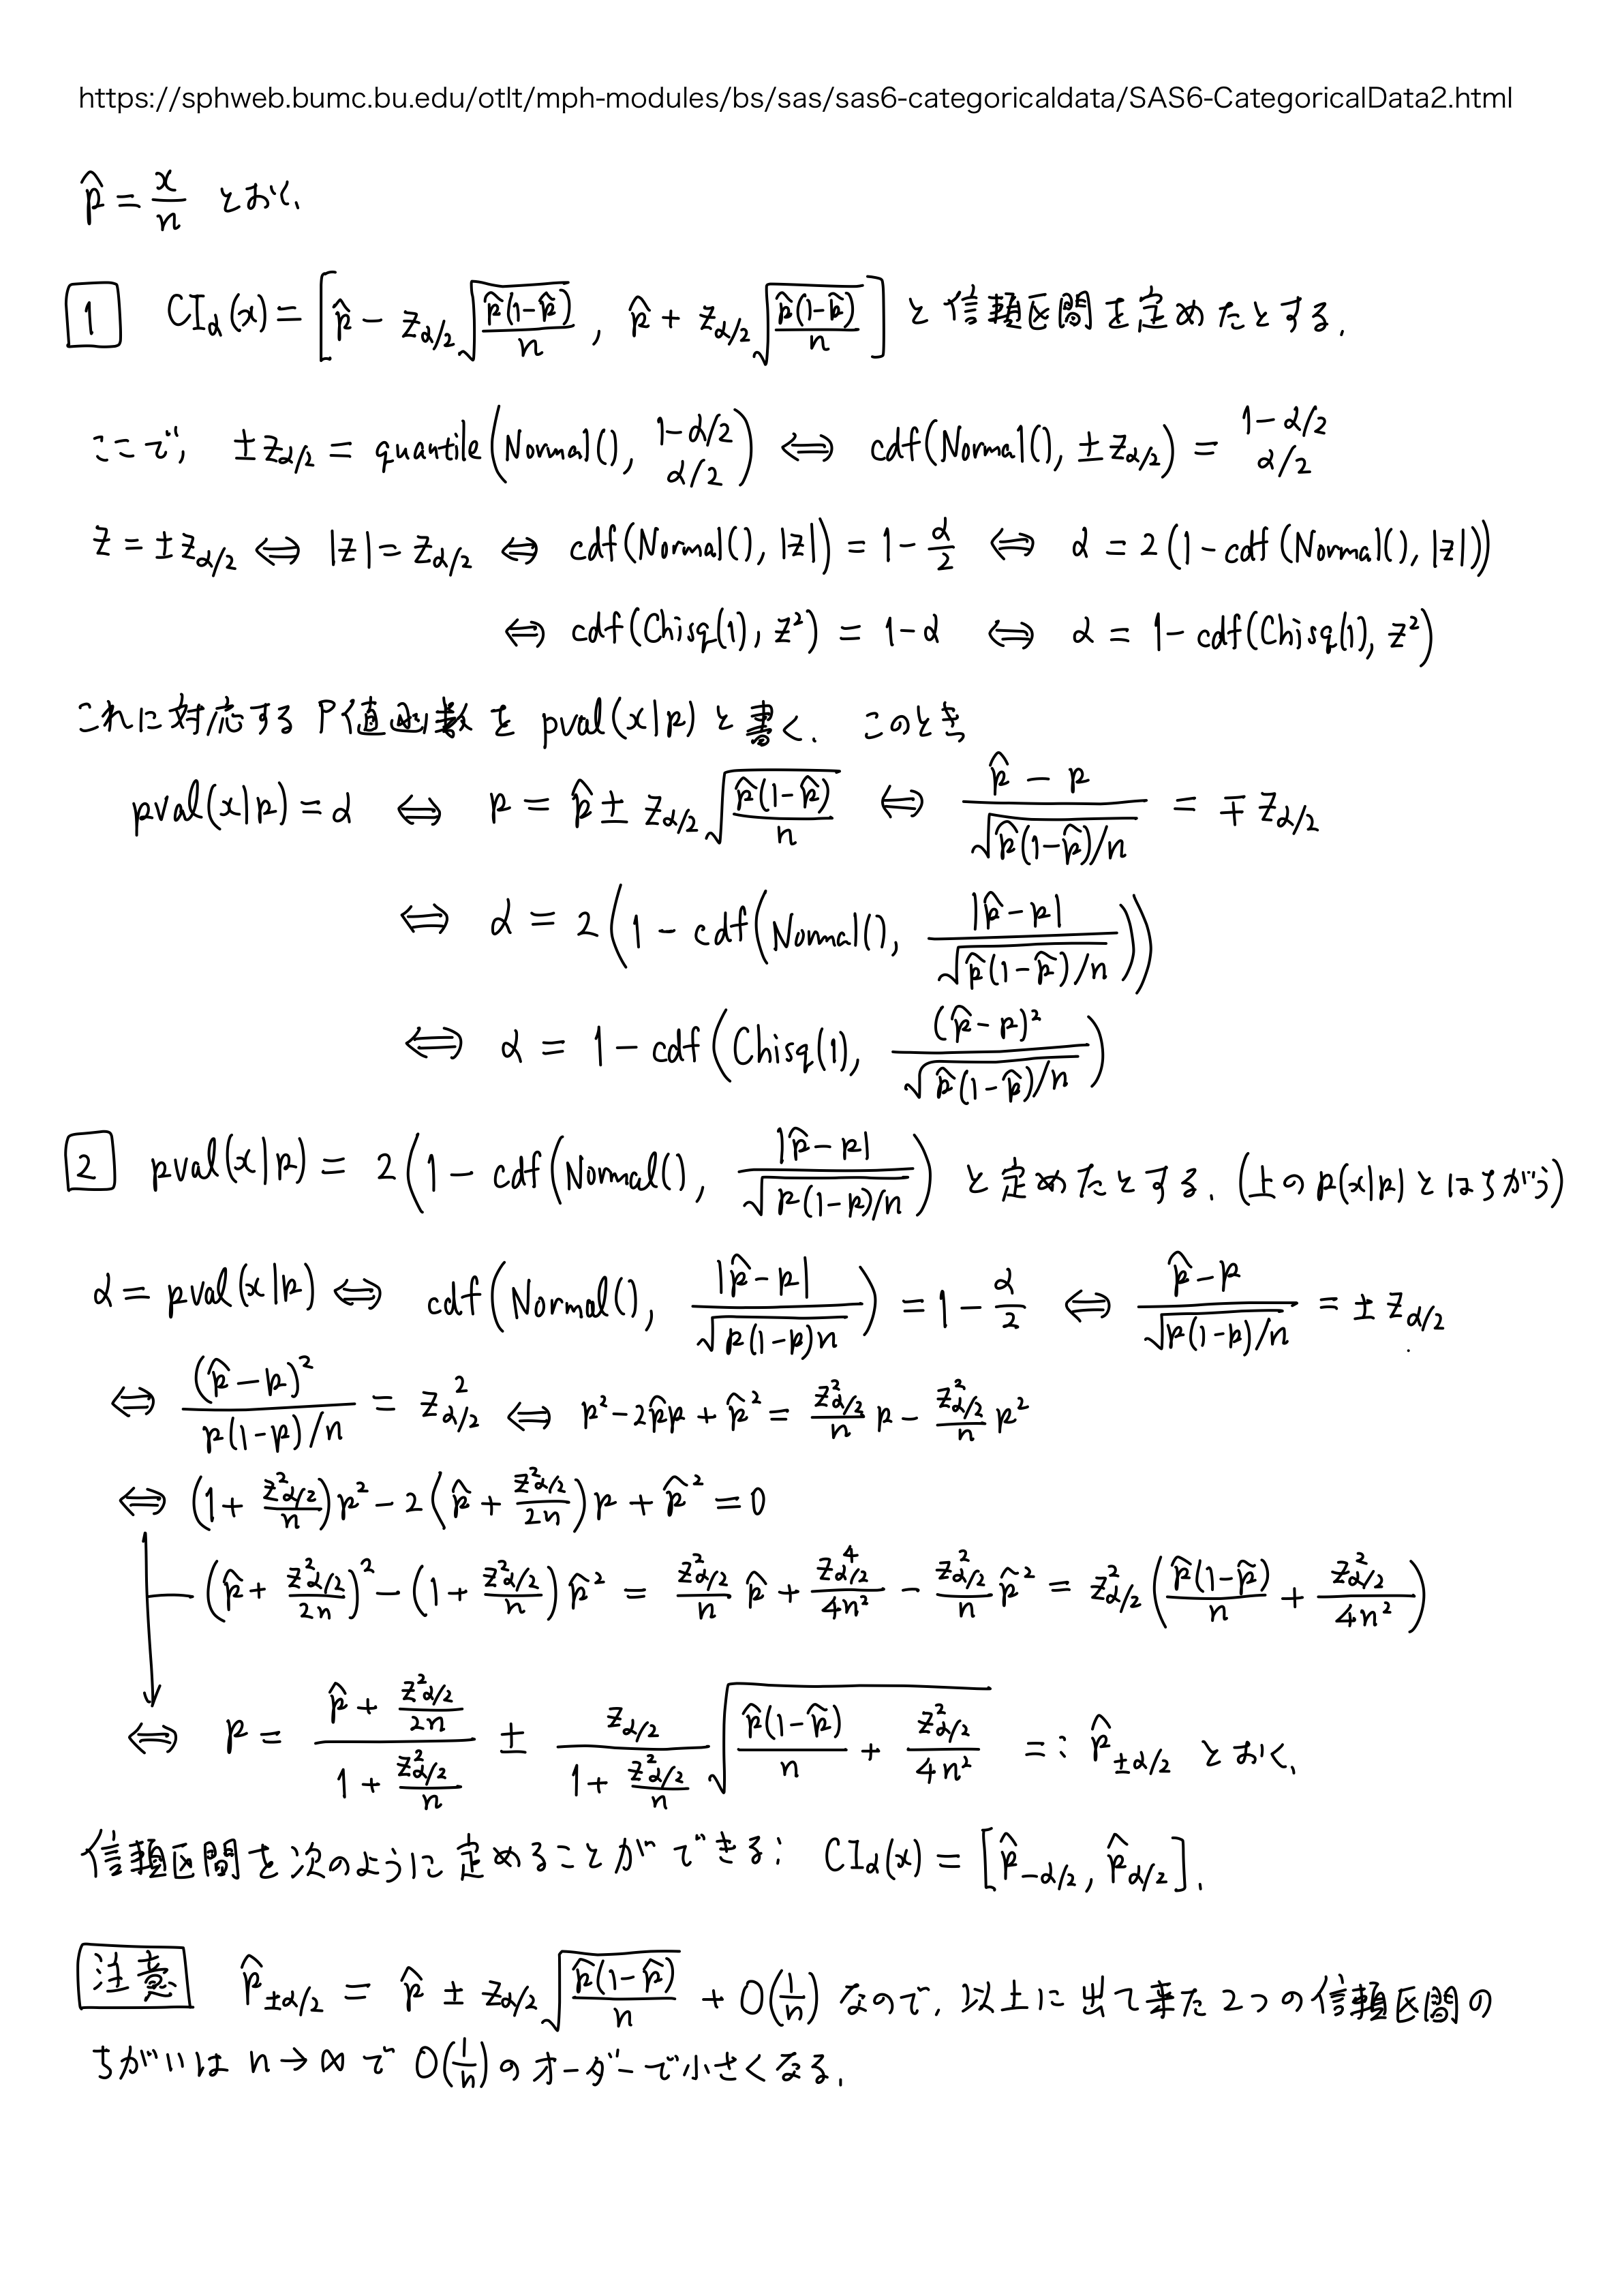 https://sphweb.bumc.bu.edu/otlt/mph-modules/bs/sas/sas6-categoricaldata/SAS6-CategoricalData2.html
p̂ = x/n とおく.
1 CI_α(x) = [p̂ - z_{α/2}√(p̂(1-p̂)/n), p̂ + z_{α/2}√(p̂(1-p̂)/n)] と信頼区間を定めたとする.
ここで, ±z_{α/2} = quantile(Normal(), 1-α/2 α/2) ⇔ cdf(Normal(), ±z_{α/2}) = 1-α/2 α/2
z = ±z_{α/2} ⇔ |z| = z_{α/2} ⇔ cdf(Normal(), |z|) = 1 - α/2 ⇔ α = 2(1-cdf(Normal(), |z|))
⇔ cdf(Chisq(1), z²) = 1-α ⇔ α = 1-cdf(Chisq(1), z²)
これに対応するP値函数を pval(x|p) と書く. このとき
pval(x|p) = α ⇔ p = p̂ ± z_{α/2}√(p̂(1-p̂)/n) ⇔ (p̂ - p)/√(p̂(1-p̂)/n) = ∓z_{α/2}
⇔ α = 2(1 - cdf(Normal(), |p̂-p|/√(p̂(1-p̂)/n)))
⇔ α = 1 - cdf(Chisq(1), (p̂-p)²/√(p̂(1-p̂)/n))
2 pval(x|p) = 2(1 - cdf(Normal(), |p̂-p|/√(p(1-p)/n)) と定めたとする. (上の p(x|p) とはちがう)
α = pval(x|p) ⇔ cdf(Normal(), |p̂-p|/√(p(1-p)n)) = 1 - α/2 ⇔ (p̂-p)/√(p(1-p)/n) = ±z_{α/2}
⇔ (p̂-p)²/(p(1-p)/n) = z²_{α/2} ⇔ p² - 2p̂p + p̂² = (z²_{α/2}/n)p - (z²_{α/2}/n)p²
⇔ (1 + z²_{α/2}/n)p² - 2(p̂ + z²_{α/2}/2n)p + p̂² = 0
(p̂ + z²_{α/2}/2n)² - (1 + z²_{α/2}/n)p̂² = (z²_{α/2}/n)p̂ + z⁴_{α/2}/4n² - (z²_{α/2}/n)p̂² = z²_{α/2}(p̂(1-p̂)/n + z²_{α/2}/4n²)
⇔ p = (p̂ + z²_{α/2}/2n)/(1 + z²_{α/2}/n) ± z_{α/2}/(1 + z²_{α/2}/n) √(p̂(1-p̂)/n + z²_{α/2}/4n²) =: p̂_{±α/2} とおく.
信頼区間を次のように定めることができる: CI_α(x) = [p̂_{-α/2}, p̂_{α/2}].
注意 p̂_{±α/2} = p̂ ± z_{α/2}√(p̂(1-p̂)/n) + O(1/n) なので, 以上に出て来た2つの信頼区間の
ちがいは n→∞ で O(1/n) のオーダーで小さくなる.